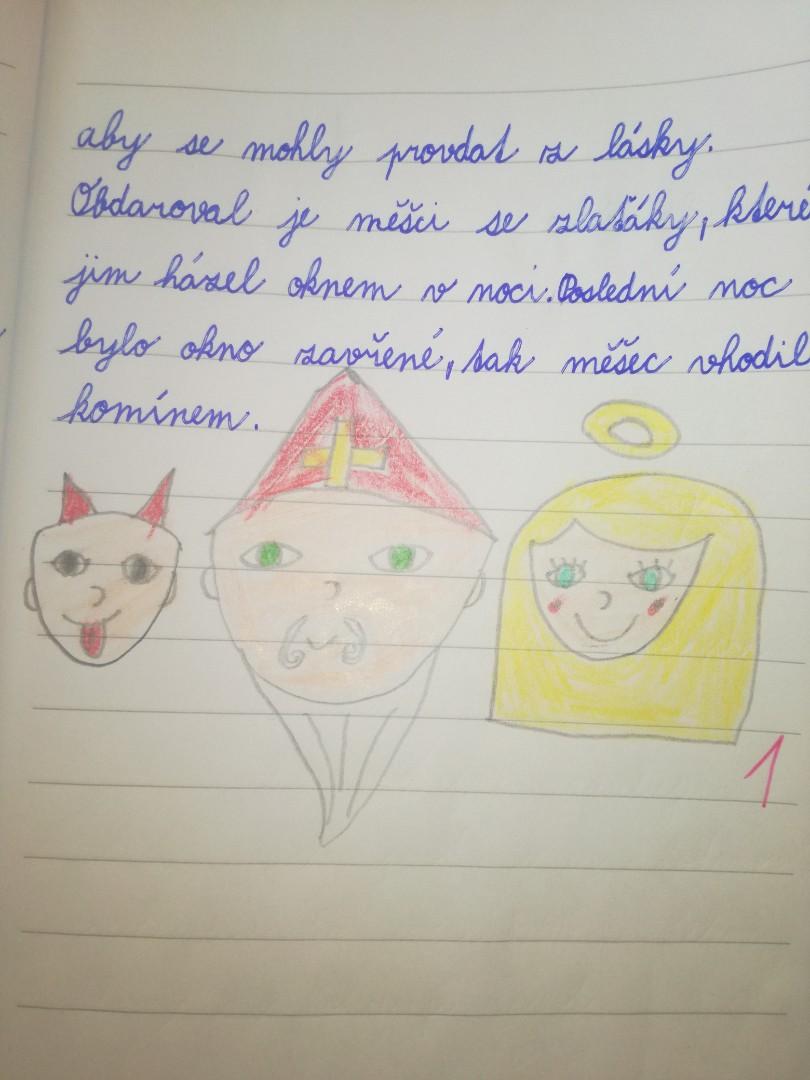 aby se mohly provdat z lásky.
Obdaroval je měšci se zlaťáky, které
jim házel oknem v noci. Poslední noc
bylo okno zavřené, tak měšec vhodil
komínem.
1